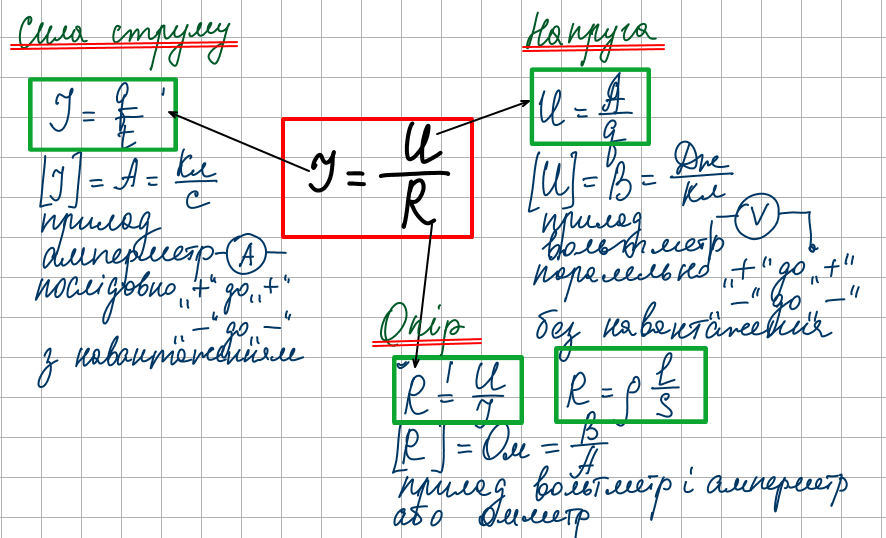 Сила струму
I = q/t
[I] = A = Кл/с
прилад
амперметр -(A)-
послідовно „+“ до „+“
„–“ до „–“
з навантаженням
I = U/R
Напруга
U = A/q
[U] = В = Дж/Кл
прилад
вольтметр
V
паралельно „+“ до „+“
„–“ до „–“
без навантаження
Опір
R = U/I
R = ρ l/S
[R] = Ом = В/А
прилад вольтметр і амперметр
або омметр